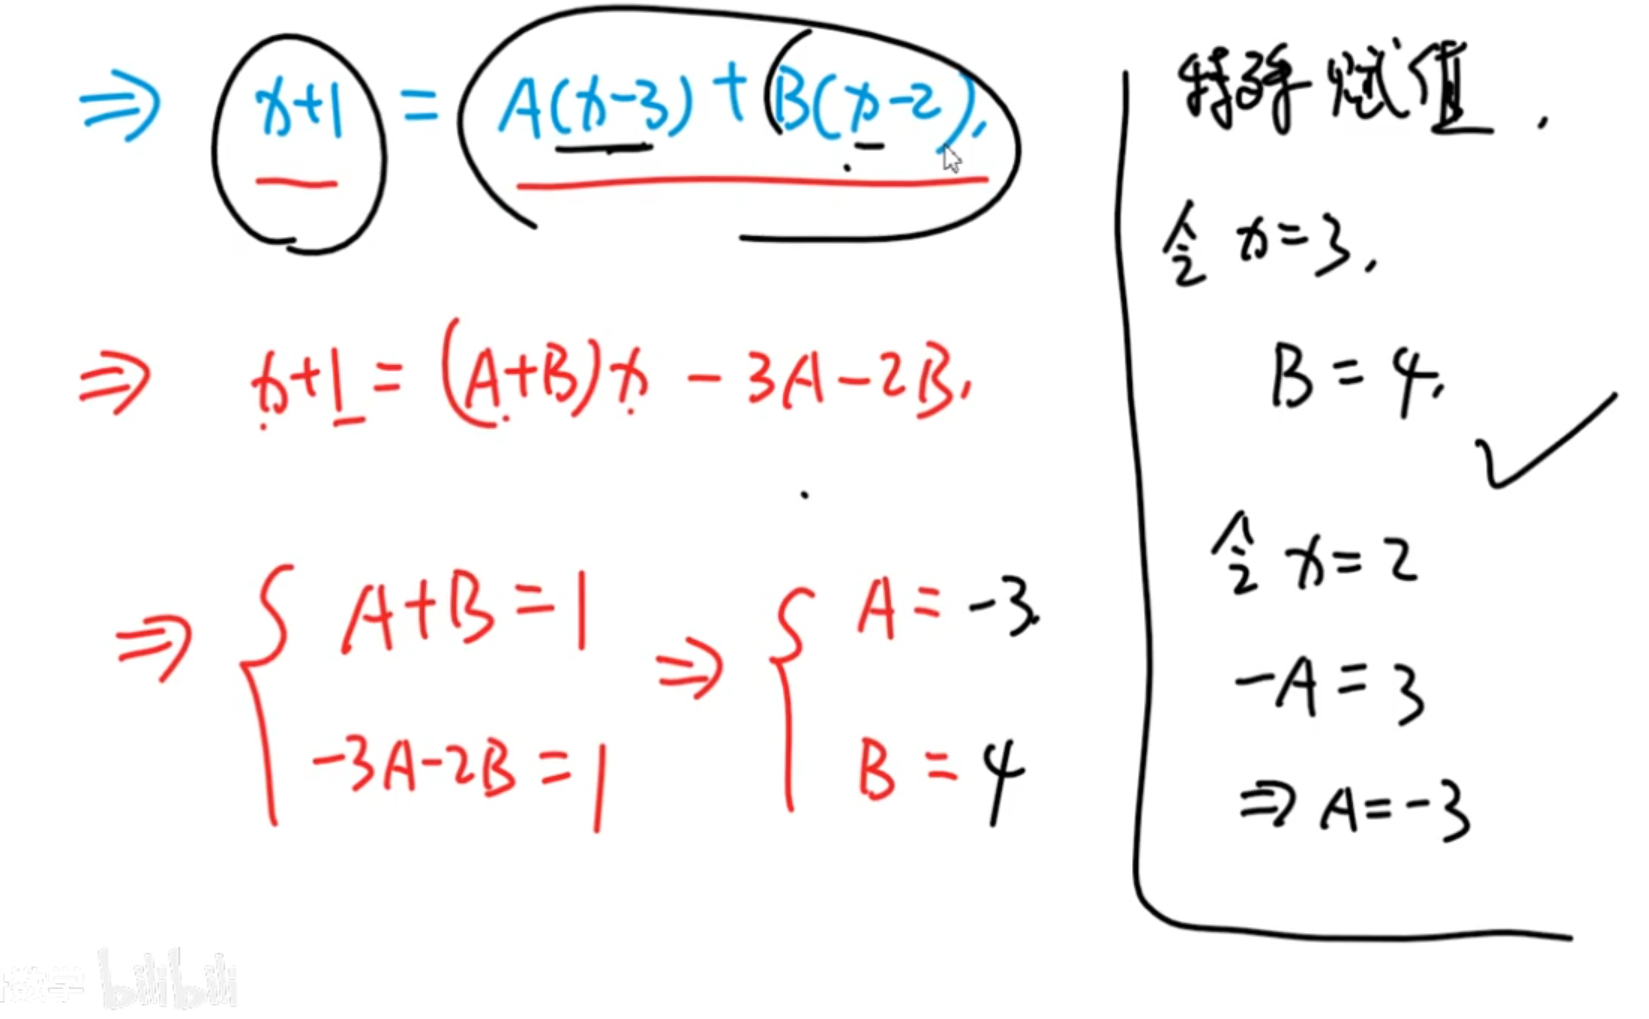 ⇒ x+1 = A(x-3) + B(x-2),
⇒ x+1 = (A+B)x - 3A - 2B,
⇒ { A+B = 1
-3A-2B = 1
⇒ { A = -3.
B = 4
特殊赋值,
令 x=3,
B = 4,
✓
令 x = 2
-A = 3
⇒ A = -3
数学 bilibili